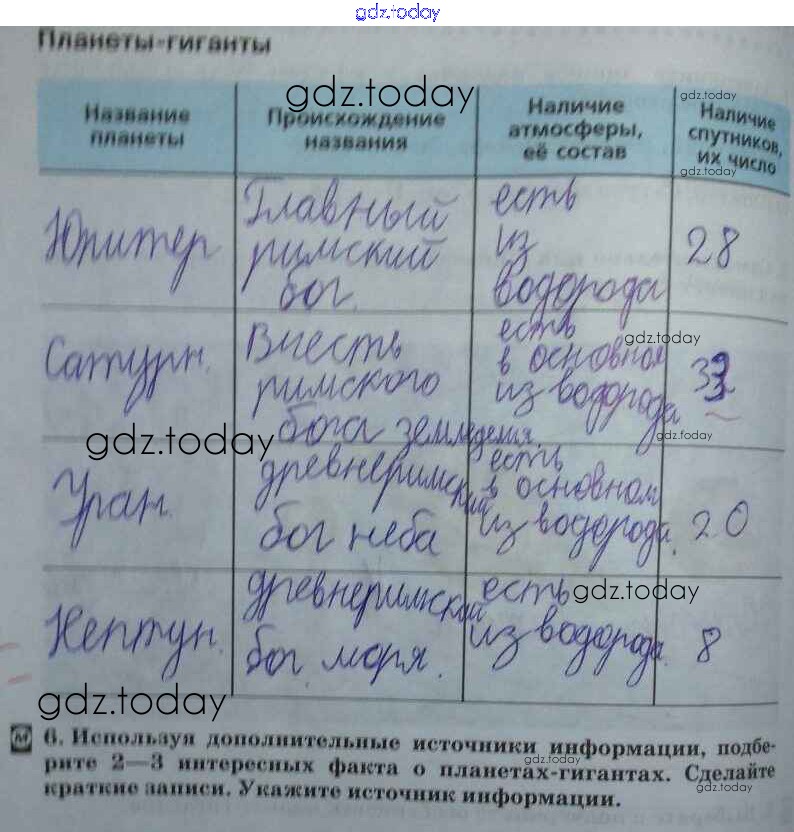 gdz.today
Планеты-гиганты
gdz.today
gdz.today
Название
планеты
Происхождение
названия
Наличие
атмосферы,
её состав
Наличие
спутников,
их число
gdz.today
Юпитер
Главный
римский
бог.
есть
из
водорода
28
Сатурн.
В честь
римского
бога земледелия.
есть
в основном
из водорода
gdz.today
gdz.today
gdz.today
Уран.
древнеримский
бог неба
есть
в основном
из водорода.
20
Нептун.
древнеримский
бог моря.
есть
из водорода.
8
gdz.today
gdz.today
6. Используя дополнительные источники информации, подбе-
рите 2—3 интересных факта о планетах-гигантах. Сделайте
краткие записи. Укажите источник информации.
gdz.today
gdz.today